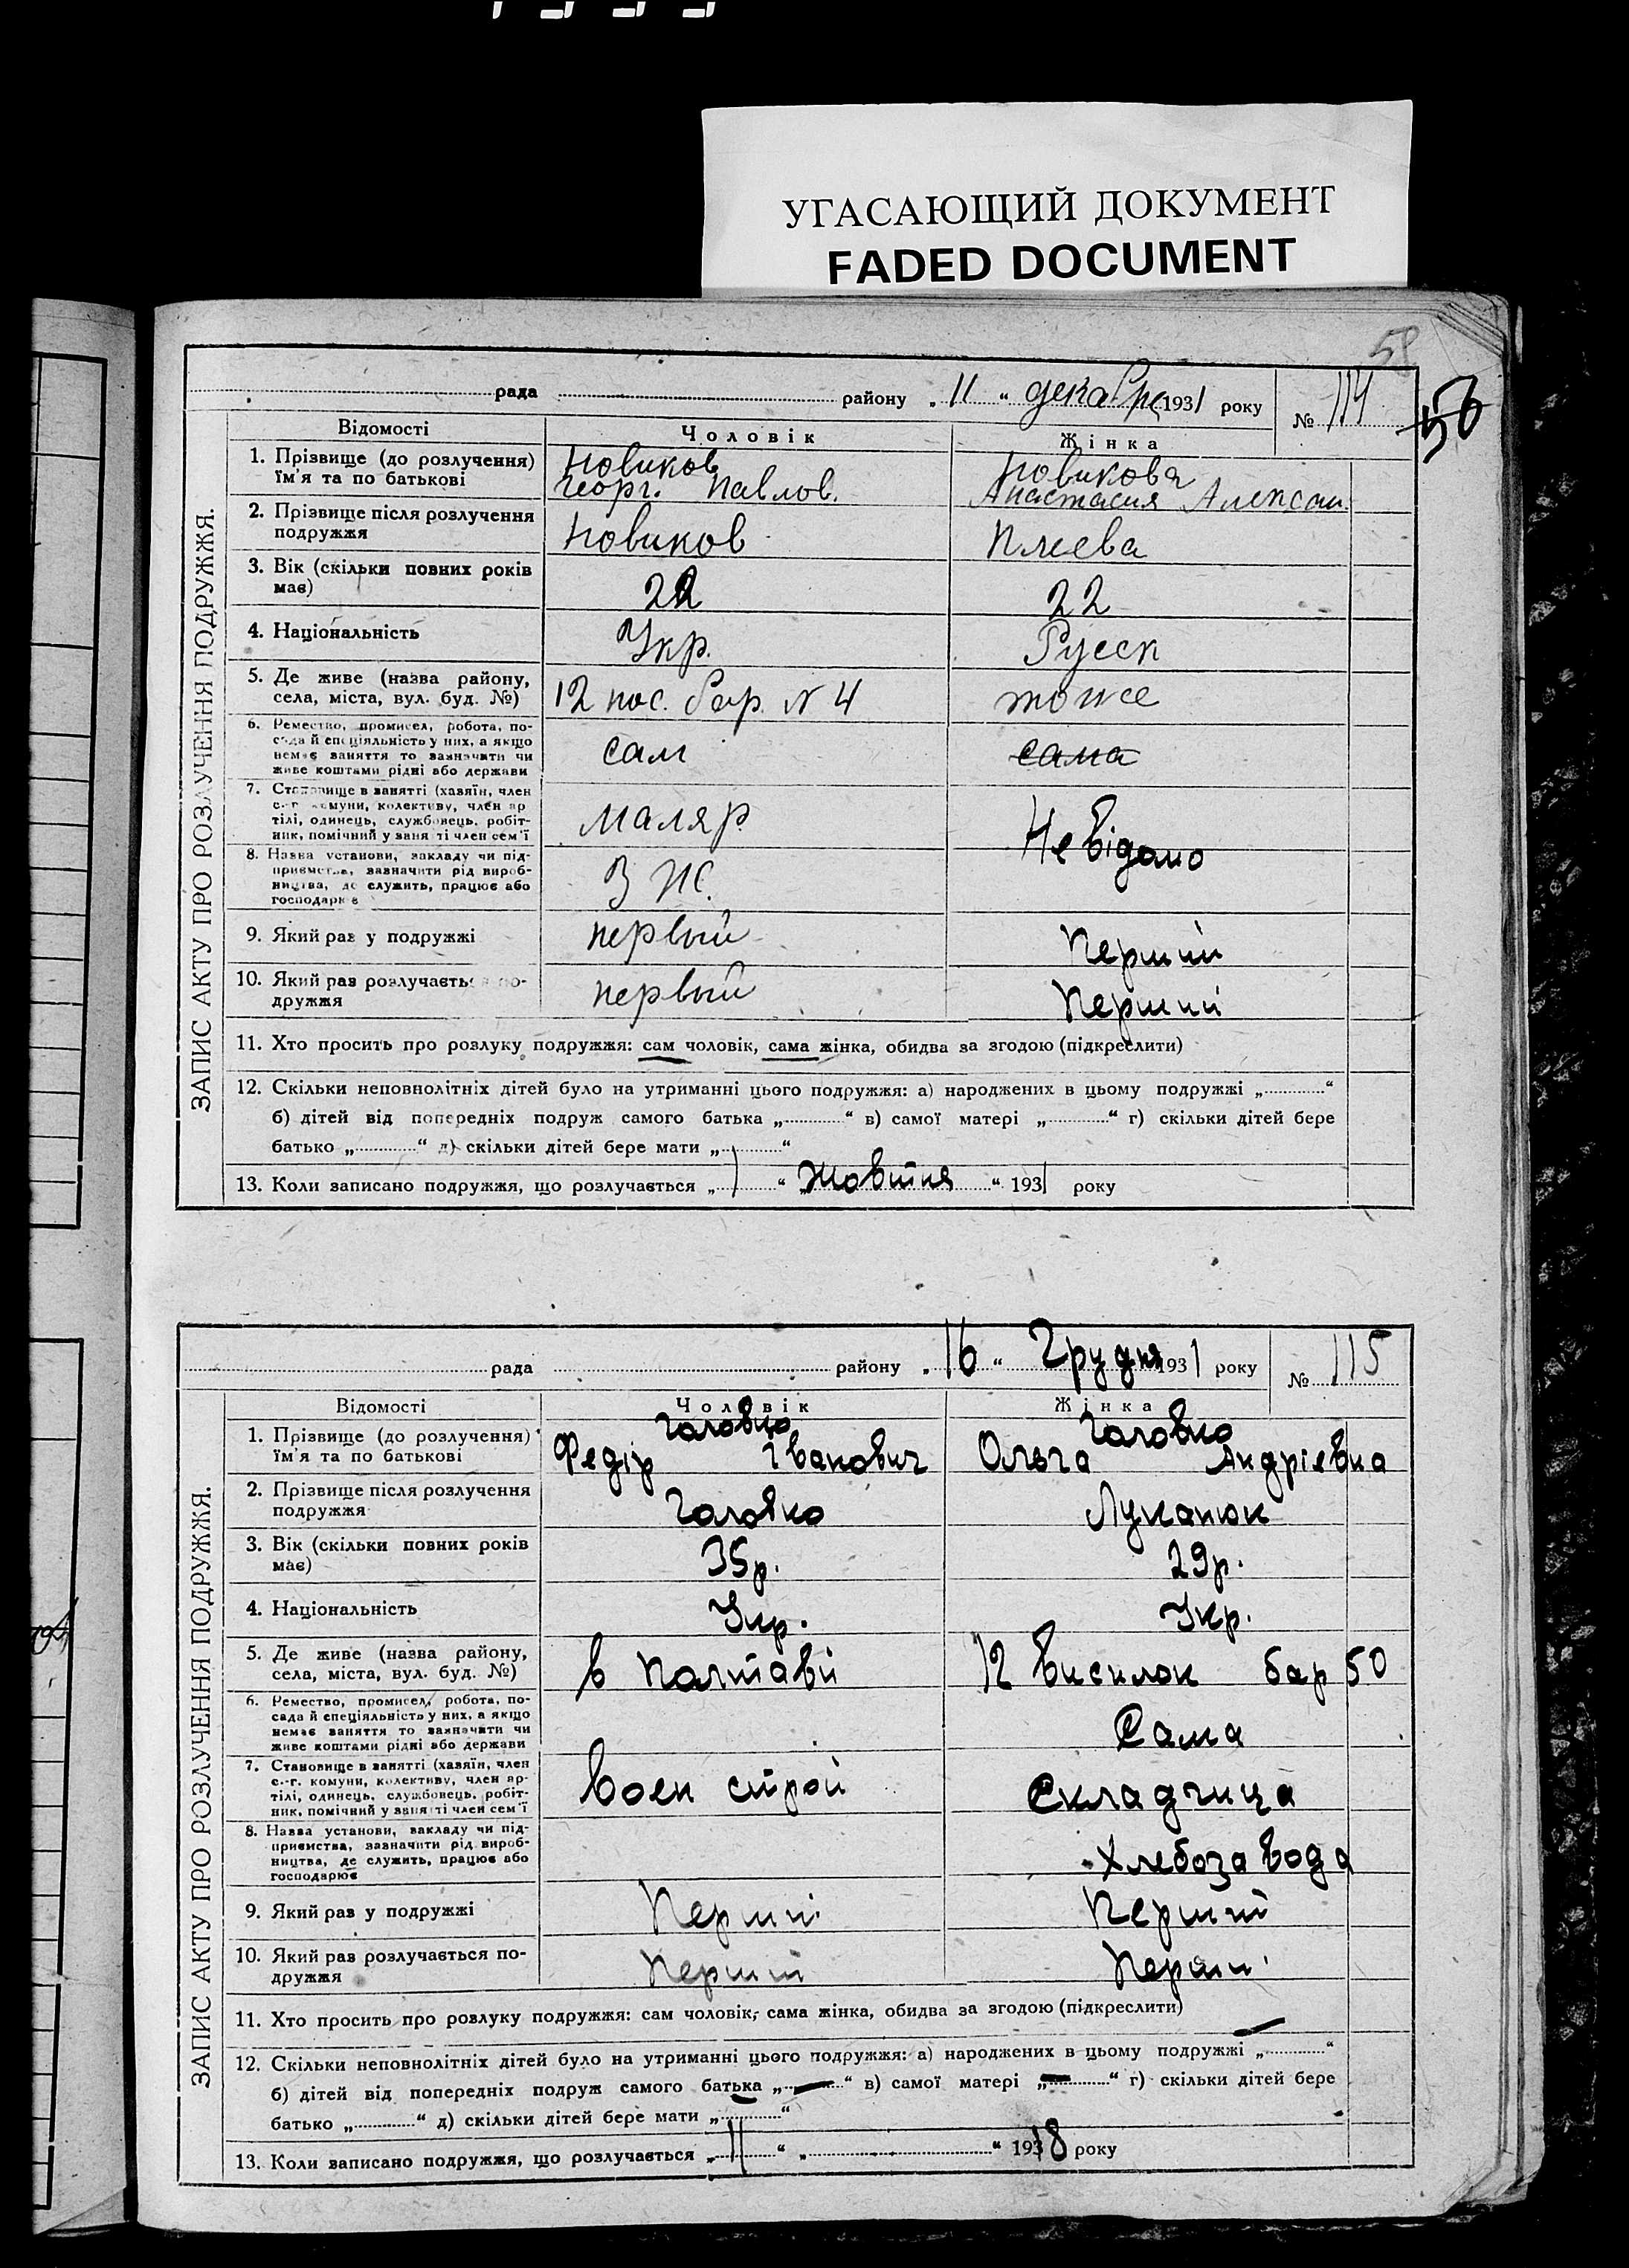 УГАСАЮЩИЙ ДОКУМЕНТ
FADED DOCUMENT
58
56
ЗАПИС АКТУ ПРО РОЗЛУЧЕННЯ ПОДРУЖЖЯ.
рада району „11“ декабря 1931 року № 114
Відомості Чоловік Жінка
1. Прізвище (до розлучення) Новиков Новикова
їм'я та по батькові Георг. Павлов. Анастасия Алексан.
2. Прізвище після розлучення
подружжя Новиков Плеева
3. Вік (скільки повних років
має) 22 22
4. Національність Укр. Русск
5. Де живе (назва району,
села, міста, вул. буд. №) 12 пос. бар. N 4 тоже
6. Ремество, промисел, робота, по-
сада й спеціяльність у них, а якщо
немає заняття то зазначити чи сам сама
живе коштами рідні або держави
7. Становище в занятті (хазяїн, член
с.-г. комуни, колективу, член ар
тілі, одинець, службовець, робіт- маляр.
ник, помічний у занятті член сем'ї Не відомо
8. Назва установи, закладу чи під-
приємства, зазначити рід вироб-
ництва, де служить, працює або
господарює
9. Який раз у подружжі первый Перший
10. Який раз розлучається по-
дружжя первый Перший
11. Хто просить про розлуку подружжя: сам чоловік, сама жінка, обидва за згодою (підкреслити)
12. Скільки неповнолітніх дітей було на утриманні цього подружжя: а) народжених в цьому подружжі „ “
б) дітей від попередніх подруж самого батька „ “ в) самої матері „ “ г) скільки дітей бере
батько „ “ д) скільки дітей бере мати „ “
13. Коли записано подружжя, що розлучається „1“ „Жовтня“ 1931 року
ЗАПИС АКТУ ПРО РОЗЛУЧЕННЯ ПОДРУЖЖЯ.
рада району „16“ Грудня 1931 року № 115
Відомості Чоловік Жінка
1. Прізвище (до розлучення) Головко Головко
їм'я та по батькові Федір Іванович Ольга Андріевна
2. Прізвище після розлучення
подружжя Головко Луканюк
3. Вік (скільки повних років
має) 35р. 29р.
4. Національність Укр. Укр.
5. Де живе (назва району,
села, міста, вул. буд. №) в Полтаві 12 висилок бар 50
6. Ремество, промисел, робота, по-
сада й спеціяльність у них, а якщо
немає заняття то зазначити чи Сама
живе коштами рідні або держави
7. Становище в занятті (хазяїн, член
с.-г. комуни, колективу, член ар-
тілі, одинець, службовець, робіт- Воен строй Складчица
ник, помічний у занятті член сем'ї
8. Назва установи, закладу чи під-
приємства, зазначити рід вироб-
ництва, де служить, працює або Хлебозавода
господарює
9. Який раз у подружжі Перший Перший
10. Який раз розлучається по-
дружжя Перший Перший
11. Хто просить про розлуку подружжя: сам чоловік, сама жінка, обидва за згодою (підкреслити)
12. Скільки неповнолітніх дітей було на утриманні цього подружжя: а) народжених в цьому подружжі „ “
б) дітей від попередніх подруж самого батька „ “ в) самої матері „ “ г) скільки дітей бере
батько „ “ д) скільки дітей бере мати „ “
13. Коли записано подружжя, що розлучається „11“ „ “ 19318 року